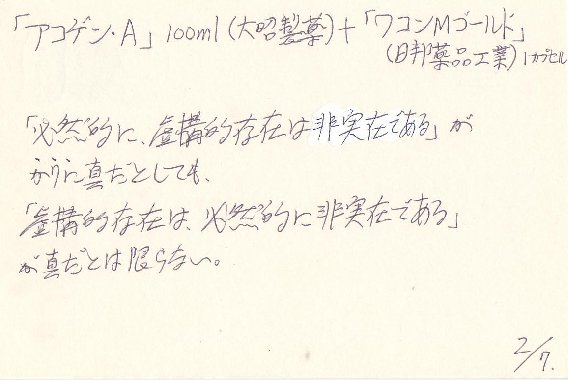 「アコゲン・A」100ml(大昭製薬)+「ワコンMゴールド」
(日邦薬品工業)1カプセル
「必然的に、虚構的存在は非実在である」が
かりに真だとしても、
「虚構的存在は、必然的に非実在である」
が真だとは限らない。
2/7.